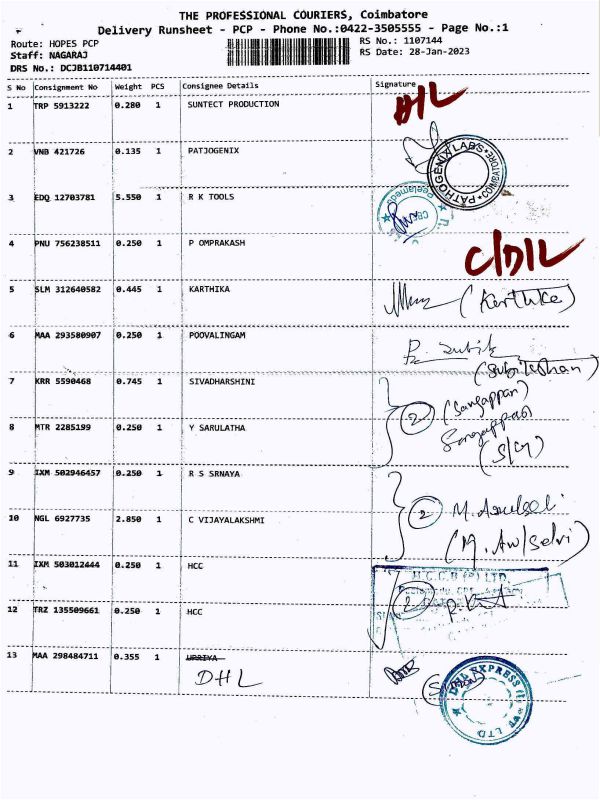 THE PROFESSIONAL COURIERS, Coimbatore
Delivery Runsheet - PCP - Phone No.:0422-3505555 - Page No.:1
Route: HOPES PCP RS No.: 1107144
Staff: NAGARAJ RS Date: 28-Jan-2023
DRS No.: DCJB110714401
S No Consignment No Weight PCS Consignee Details Signature
1 TRP 5913222 0.280 1 SUNTECT PRODUCTION
2 VNB 421726 0.135 1 PATJOGENIX
PATHOGENIX LABS COIMBATORE
3 EDQ 12703781 5.550 1 R K TOOLS
4 PNU 756238511 0.250 1 P OMPRAKASH
C/D/L
5 SLM 312640582 0.445 1 KARTHIKA
(Karthika)
6 MAA 293580907 0.250 1 POOVALINGAM
7 KRR 5590468 0.745 1 SIVADHARSHINI
2 (Sangappan)
8 MTR 2285199 0.250 1 Y SARULATHA
9 IXM 502946457 0.250 1 R S SRNAYA
10 NGL 6927735 2.850 1 C VIJAYALAKSHMI
2
11 IXM 503012444 0.250 1 HCC
12 TRZ 135509661 0.250 1 HCC
2
13 MAA 298484711 0.355 1 URRIYA
DHL
DHL EXPRESS (I) PVT LTD